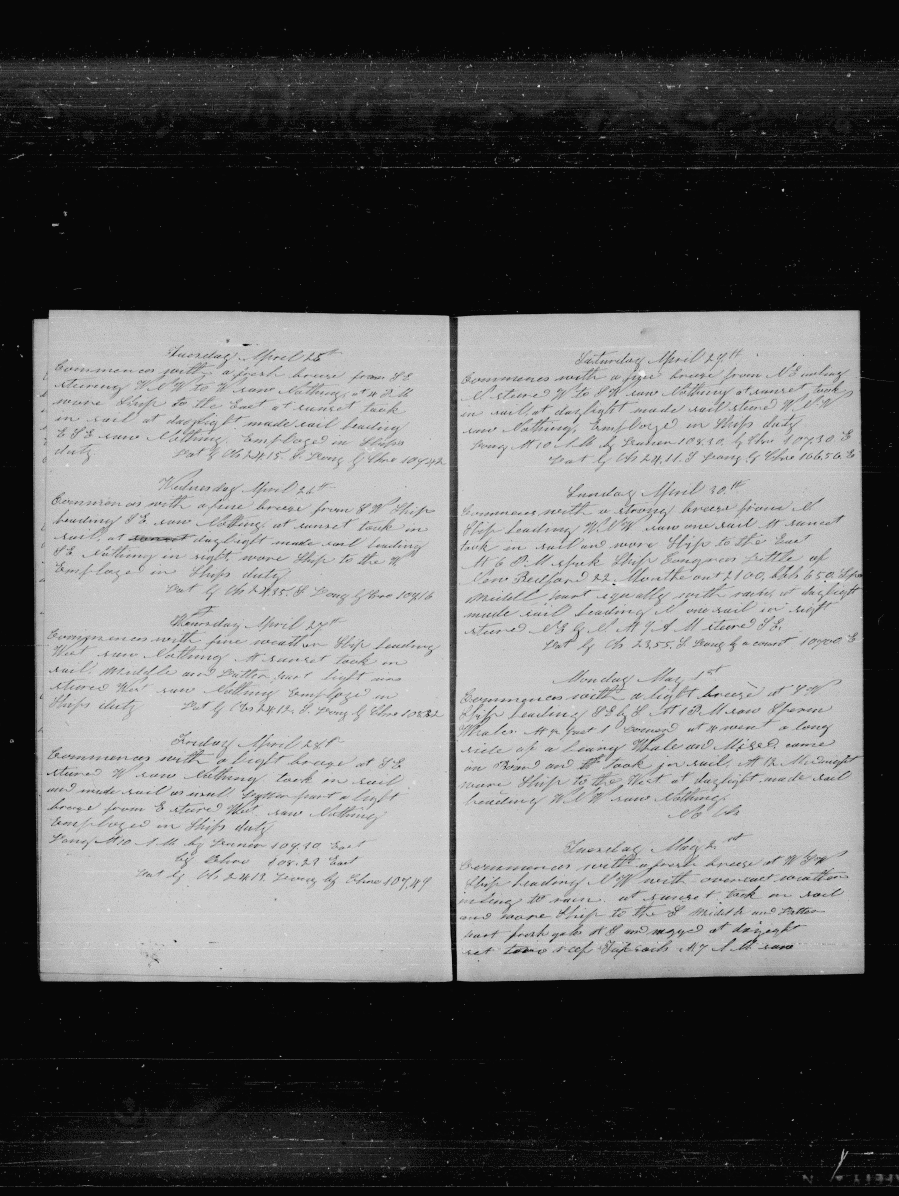 Tuesday April 25th
Commences with a fresh breeze from S E
stering W N W to W saw Nothing at 4 P M
wore Ship to the East at sunset took
in sail at daylight made sail heading
E S E saw Nothing Employed in Ships
duty Lat by Ob 24.15. S Long by Chro 107.42
Wednesday April 26th
Commences with a fine breeze from S W Ship
heading S E saw Nothing at sunset took in
sail, at sunset daylight made sail heading
S E Nothing in sight wore Ship to the W
Employed in Ships duty
Lat by Ob 24.35. S Long by Chro 107.16
Thursday April 27th
Commences with fine weather Ship heading
West saw Nothing At sunset took in
sail Middle and Latter part light airs
stured West saw Nothing Employed in
Ships duty Lat by Ob 24.12. S Long by Chro
Friday April 28th
Commences with a light breeze at S E
stured W saw Nothing took in sail
and made sail as usual Latter part a light
breeze from E stured West saw Nothing
Employed in Ships duty
Long At 10 A M by Lunar 107.30 East
by Chro 108.29 East
Lat by Ob 24.12 Long by Chro 107.49
Saturday April 29th
Commences with a fine breeze from N E
stured W to S W saw Nothing at sunset took
in sail, at daylight made sail stured W N W
saw Nothing, Employed in Ships duty
Long At 10 A M by Lunar 108.30. by Chro 107.30 E
Lat by Ob 24.11. S Long by Chro 106.56 E
Sunday April 30th
Commences with a strong breeze from N
Ship heading W N W saw one sail At sunset
took in sail and wore Ship to the East
At 6 P M spoke Ship Congress Settle of
New Bedford 22 Months out 2100, bbls 650. Sperm
Middle part squally with rain at daylight
made sail heading N one sail in sight
stured N E by N. At 7 A M stured S E
Lat by Ob 23.55. S Long by acount 107.00 E
Monday May 1st
Commences with a light breeze at S W
Ship heading S E by S At 1 P M saw Sperm
Whales At 2 past 1 Lowered at 4 went a long
side of a Large Whale and Missed came
on Board and took in sail. At 12 Midnight
wore Ship to the West at daylight made sail
heading W N W saw Nothing.
No Ob
Tuesday May 2st
Commences with a fresh breeze at W S W
Ship heading N W with overcast weather
inding to rain. at sunset took in sail
and wore Ship to the S Middle and Latter
part fresh gales At S and rugged at daylight
set reef Topsails At 7 A M saw